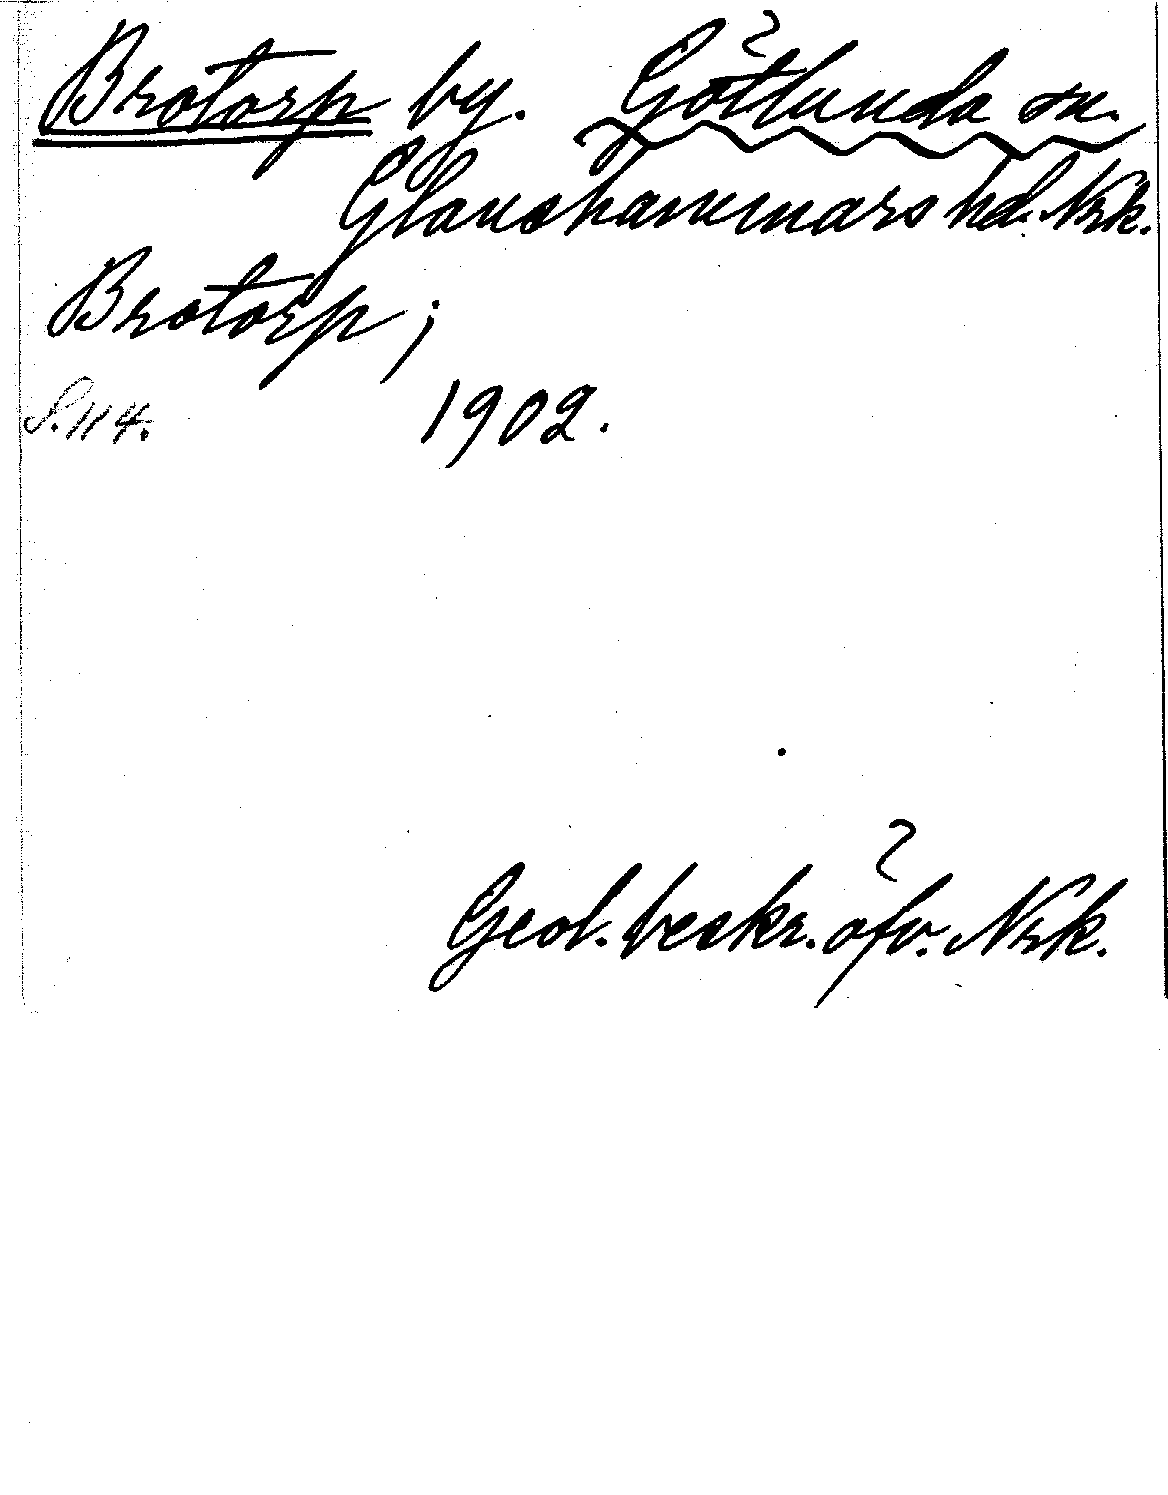 Brotorp by. Götlunda sn.
Glanshammars hd. Nrk.
Brotorp;
S. 114. 1902.
Geol. beskr. öfv. Nrk.